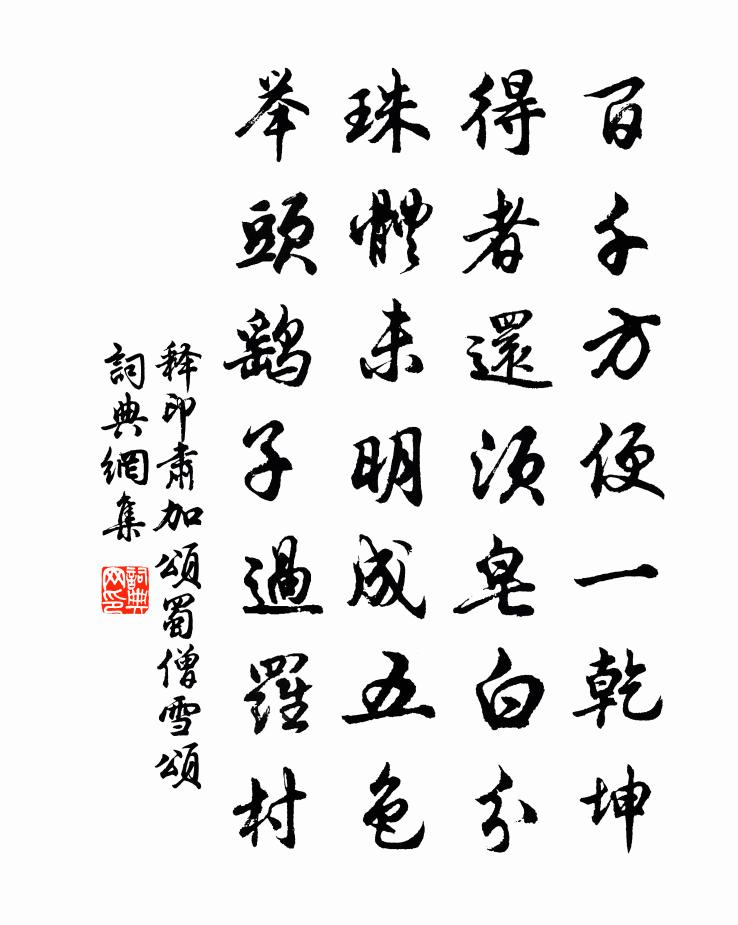 百千方便一乾坤
得者還須皂白分
珠體未明成五色
举頭鷂子過羅村
释印肃加頌蜀僧雪頌
詞典網集
詞典网印